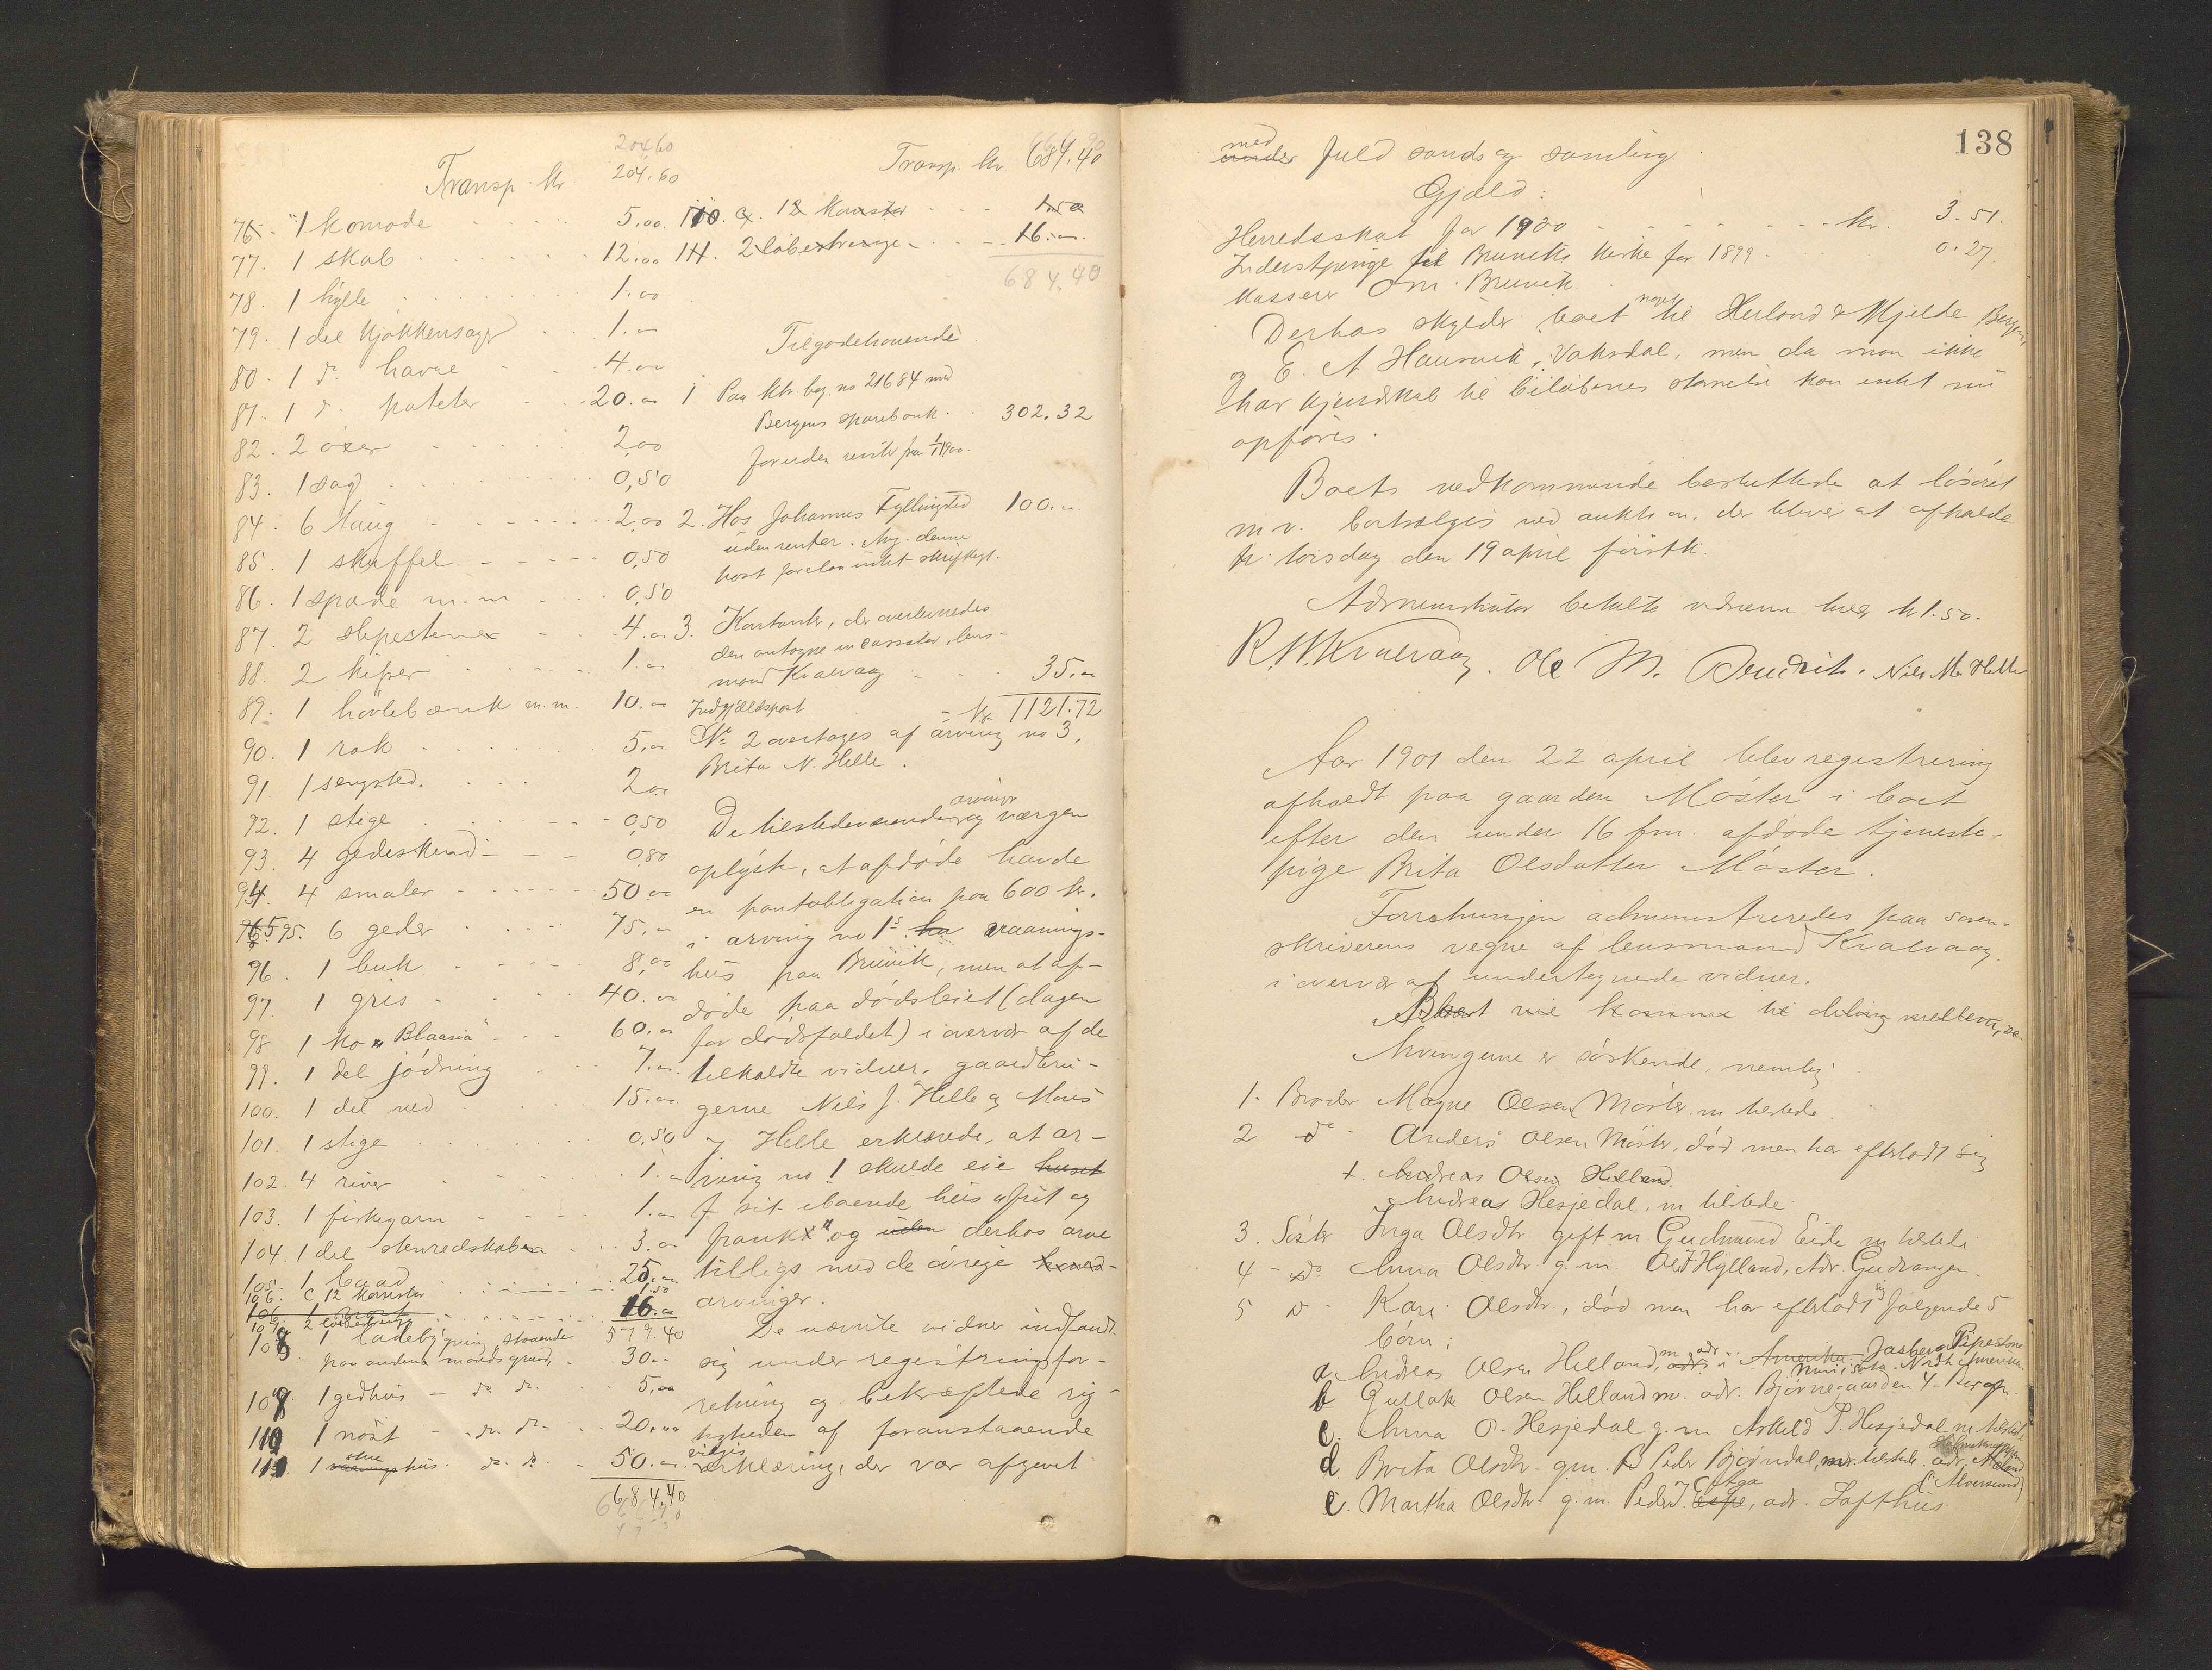 204,60
Transp. kr. 204.60
76. 1 komode 5.00
77. 1 skab 12.00
78. 1 hylle 1.00
79. 1 del kjøkkensager 1.00
80. 1 do. havre 4.00
81. 1 do. poteter 20.00
82. 2 øxer 2,00
83. 1 sag 0,50
84. 6 taug 2,00
85. 1 skuffel 0,50
86. 1 spade m.m 0,50
87. 2 slipestene 4.00
88. 2 kiper 1.00
89. 1 høvlebænk m.m. 10.00
90. 1 rok 5.00
91. 1 sengsted. 2.00
92. 1 stige 0,50
93. 4 gedeskind 0.80
94. 4 smaler 50.00
95. 6 geder 75.00
96. 1 buk 8,00
97. 1 gris 40.00
98 1 ko "Blaasia" 60.00
99. 1 del jødning 7.00
100. 1 del ved 15.00
101. 1 stige 0,50
102. 4 river 1.00
103. 1 fiskegarn 1.00
104. 1 del stenredskaber 3.00
105. 1 baad 25.00
106. 12 1.50
107. 2 16.00
579.40
108 1 ladebygning, staaende
paa anden mands grund, 30.00
109 1 gedhus - do. do. 5,00
110 1 nøst - do. do. 20,00
111 1 hus. do. do. 50.00
684,40
Transp. kr. 684,40
110. 12 1.50
111. 2 16.00
684,40
Tilgodehavende
1 Paa ktr. bog no 21684 med
Bergens sparebank 302.32
foruden renter fra 1/1 1900.
2. Hos Johannes Fyllingsled 100.00
uden renter. Ang. denne
post forelaa intet skriftligt.
3. Kontanter, der overleveredes
den antagne incassator, lens-
mand Kvalvaag 35.00
Indgjældspost kr 1121.72
No 2 overtages af arving no 3,
Brita N. Helle.
De tilstedeværende arvinger og værgen
oplyste, at afdøde havde
en pantobligation paa 600 kr.
i arving no 1s ha vaanings-
hus paa Bruvik, men at af-
døde paa dødsleiet (dagen
før dødsfaldet) i overvær af de
tilkaldte vidner, gaardbru-
gerne Nils J. Helle og Mons
J Helle erklærede, at ar-
ving no 1 skulde eie huset
"sit iboende hus afrit og
frankt" og uden derhos arve
tilligs med de øvrige
arvinger.
De nævnte vidner indfandt
sig under registringsfor-
retning og bekræftede rig-
tigheden af foranstaaende
erklæring, der var afgivet
138
med
under fuld sands og samling.
Gjæld:
Herredsskat for 1900 kr. 3.51.
Inderstpenge til Bruviks kirke for 1899 0.27.
Kasserer Bruvik.
Derhos skylder boet noget til Herland & Mjelde Bergen,
og E. A Hausvik, Vaksdal, men da man ikke
har kjendskab til beløbenes størrelse kan intet nu
opføres.
Boets vedkommende besluttede at løsøret
m v. bortsælges ved auktion, der bliver at afholde
torsdag den 19 april førstk.
Administrator betalte vidnerne hver kr 1.50.
R. Kvalvaag. Ole M. Bruvik. Nils M. Helle
Aar 1901 den 22 april blev registrering
afholdt paa gaarden Møster i boet
efter den under 16 fm. afdøde tjeneste-
pige Brita Olsdatter Møster.
Forretningen administreredes paa soren-
skriverens vegne af lensmand Kvalvaag
i overvær af undertegnede vidner.
Boet vil komme til deling mellem
Arvingerne er søskende, nemlig
1. Broder Magne Olsen Møster, m tilstede.
2 do - Anders Olsen Møster, død men ha efterladt sig
+. Andreas Olsen Helland.
Andreas Hesjedal, m tilstede
3. Søster Inga Olsdtr. gift m Gudmund Eide m tilstede
4 - do Anna Olsdtr g. m. Ole Hylland, Adr. Gudvangen.
5 do - Kari Olsdtr., død men har efterladt sig følgende 5
børn:
a. Andreas Olsen Helland, m adr. i Amerika Jasper Pipestone
Minnesota. Nordt Amerika.
b Gullak Olsen Helland m. adr. Bjørnegaarden 4 Bergen.
c. Anna O. Hesjedal g. m Askild P. Hesjedal m tilsted.
d. Brita Olsdtr. gm. Peder Bjørndal, m. tilstede. adr.
(Alversund)
e. Martha Olsdtr. g. m. Peder J. Espe Aga, adr. Lofthus.